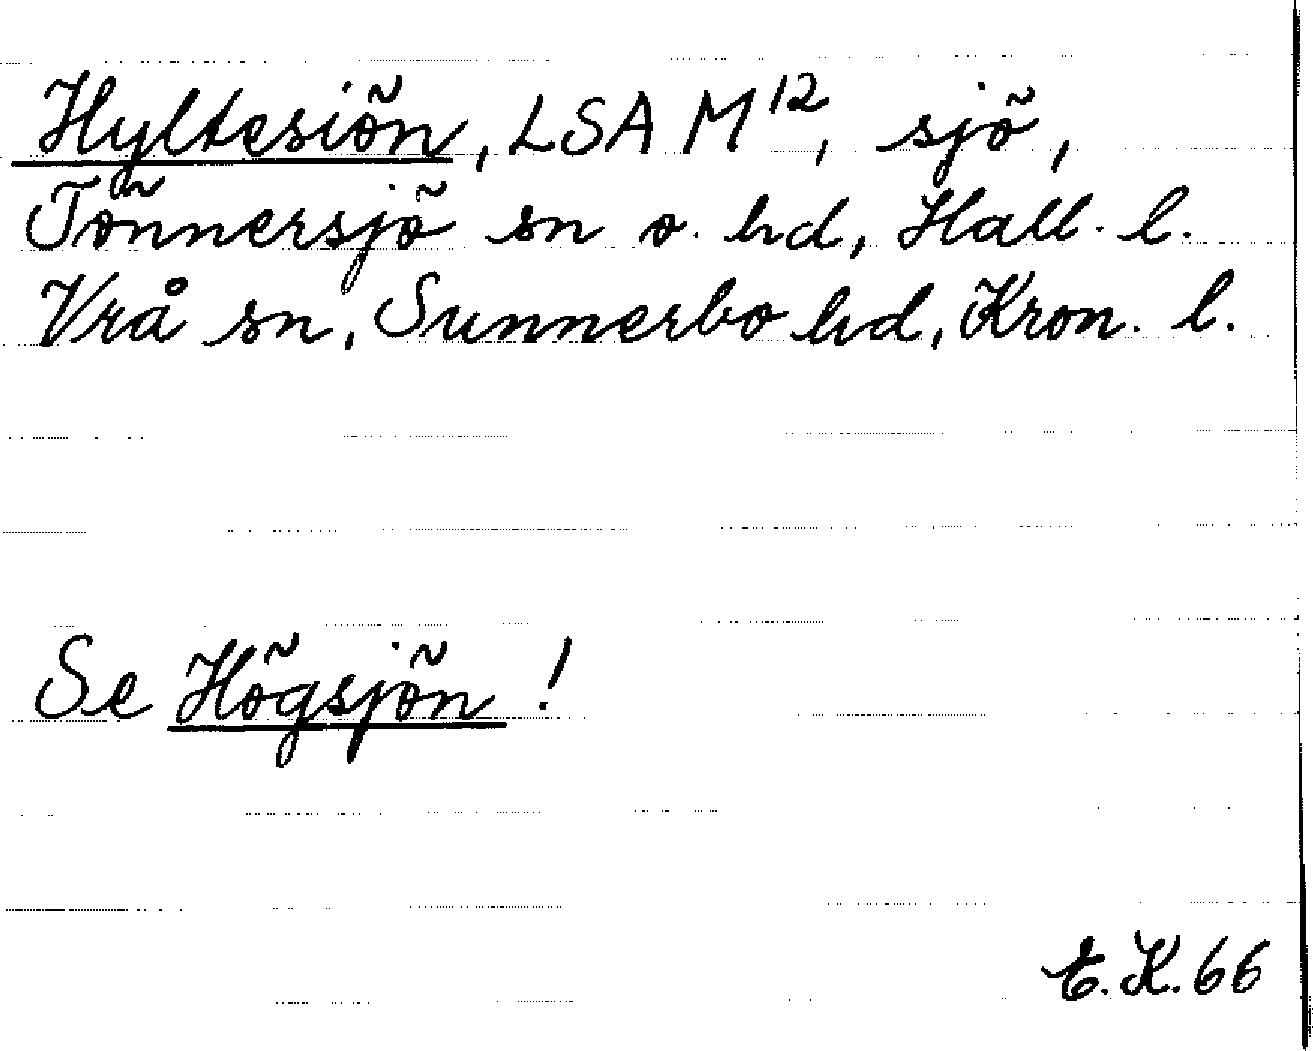 Hyltesiön, LSA M12, sjö,
Tönnersjö sn o. hd, Hall. l.
Vrå sn, Sunnerbo hd, Kron. l.
Se Högsjön!
E.K.66